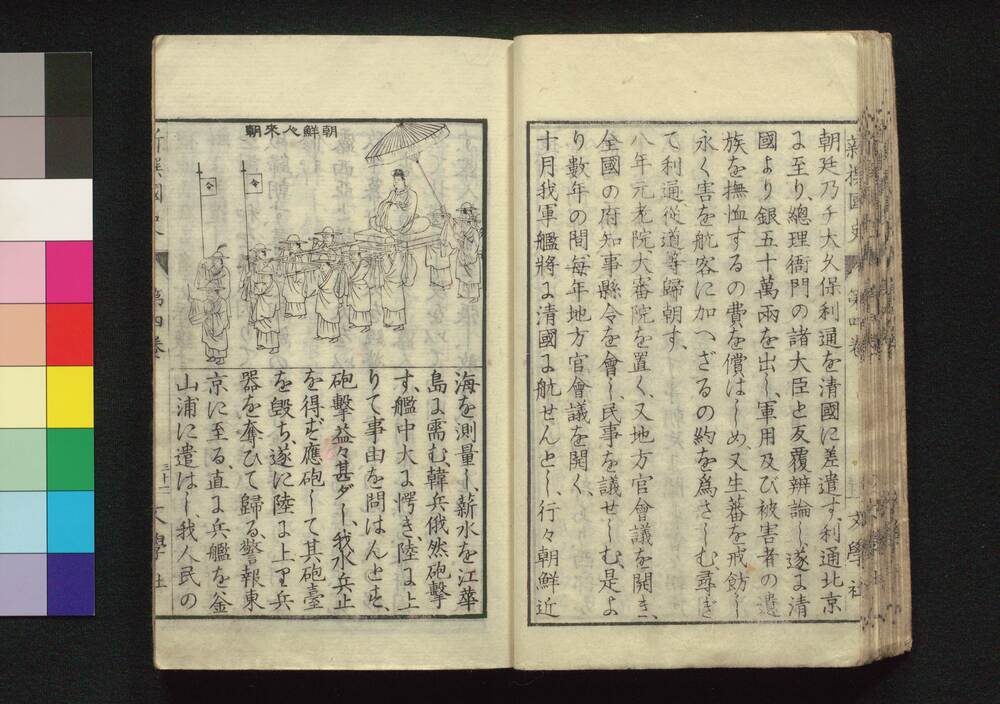 朝廷乃チ大久保利通を清國に差遣す、利通北京
に至り、總理衙門の諸大臣と反覆辨論し、遂に清
國より銀五十萬兩を出し、軍用及び被害者の遺
族を撫恤するの費を償はしめ、又生蕃を戒飭し
永く害を航客に加へざるの約を爲さしむ、尋ぎ
て利通從道等歸朝す、
八年元老院大審院を置く、又地方官會議を開き、
全國の府知事縣令を會し、民事を議せしむ、是よ
り數年の間、每年地方官會議を開く、
十月我軍艦將に清國に航せんとし、行々朝鮮近
朝鮮人來朝
令
令
海を測量し、薪水を江華
島に需む、韓兵俄然砲擊
す、艦中大に愕き、陸に上
りて事由を問はんとせ、
砲擊益々甚ダし、我水兵止
を得ず應砲して其砲臺
を毀ち、遂に陸に上り兵
器を奪ひて歸る、警報東
京に至る、直に兵艦を釜
山浦に遣はし、我人民の
新撰國史
第四卷
三十二
文學社